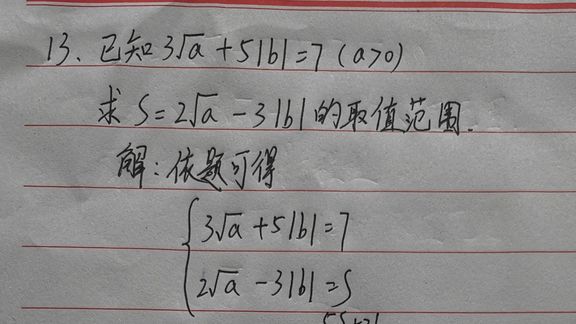 13、已知3√a+5|b|=7 (a>0)
求 S=2√a-3|b|的取值范围.
解：依题可得
{3√a+5|b|=7
2√a-3|b|=S